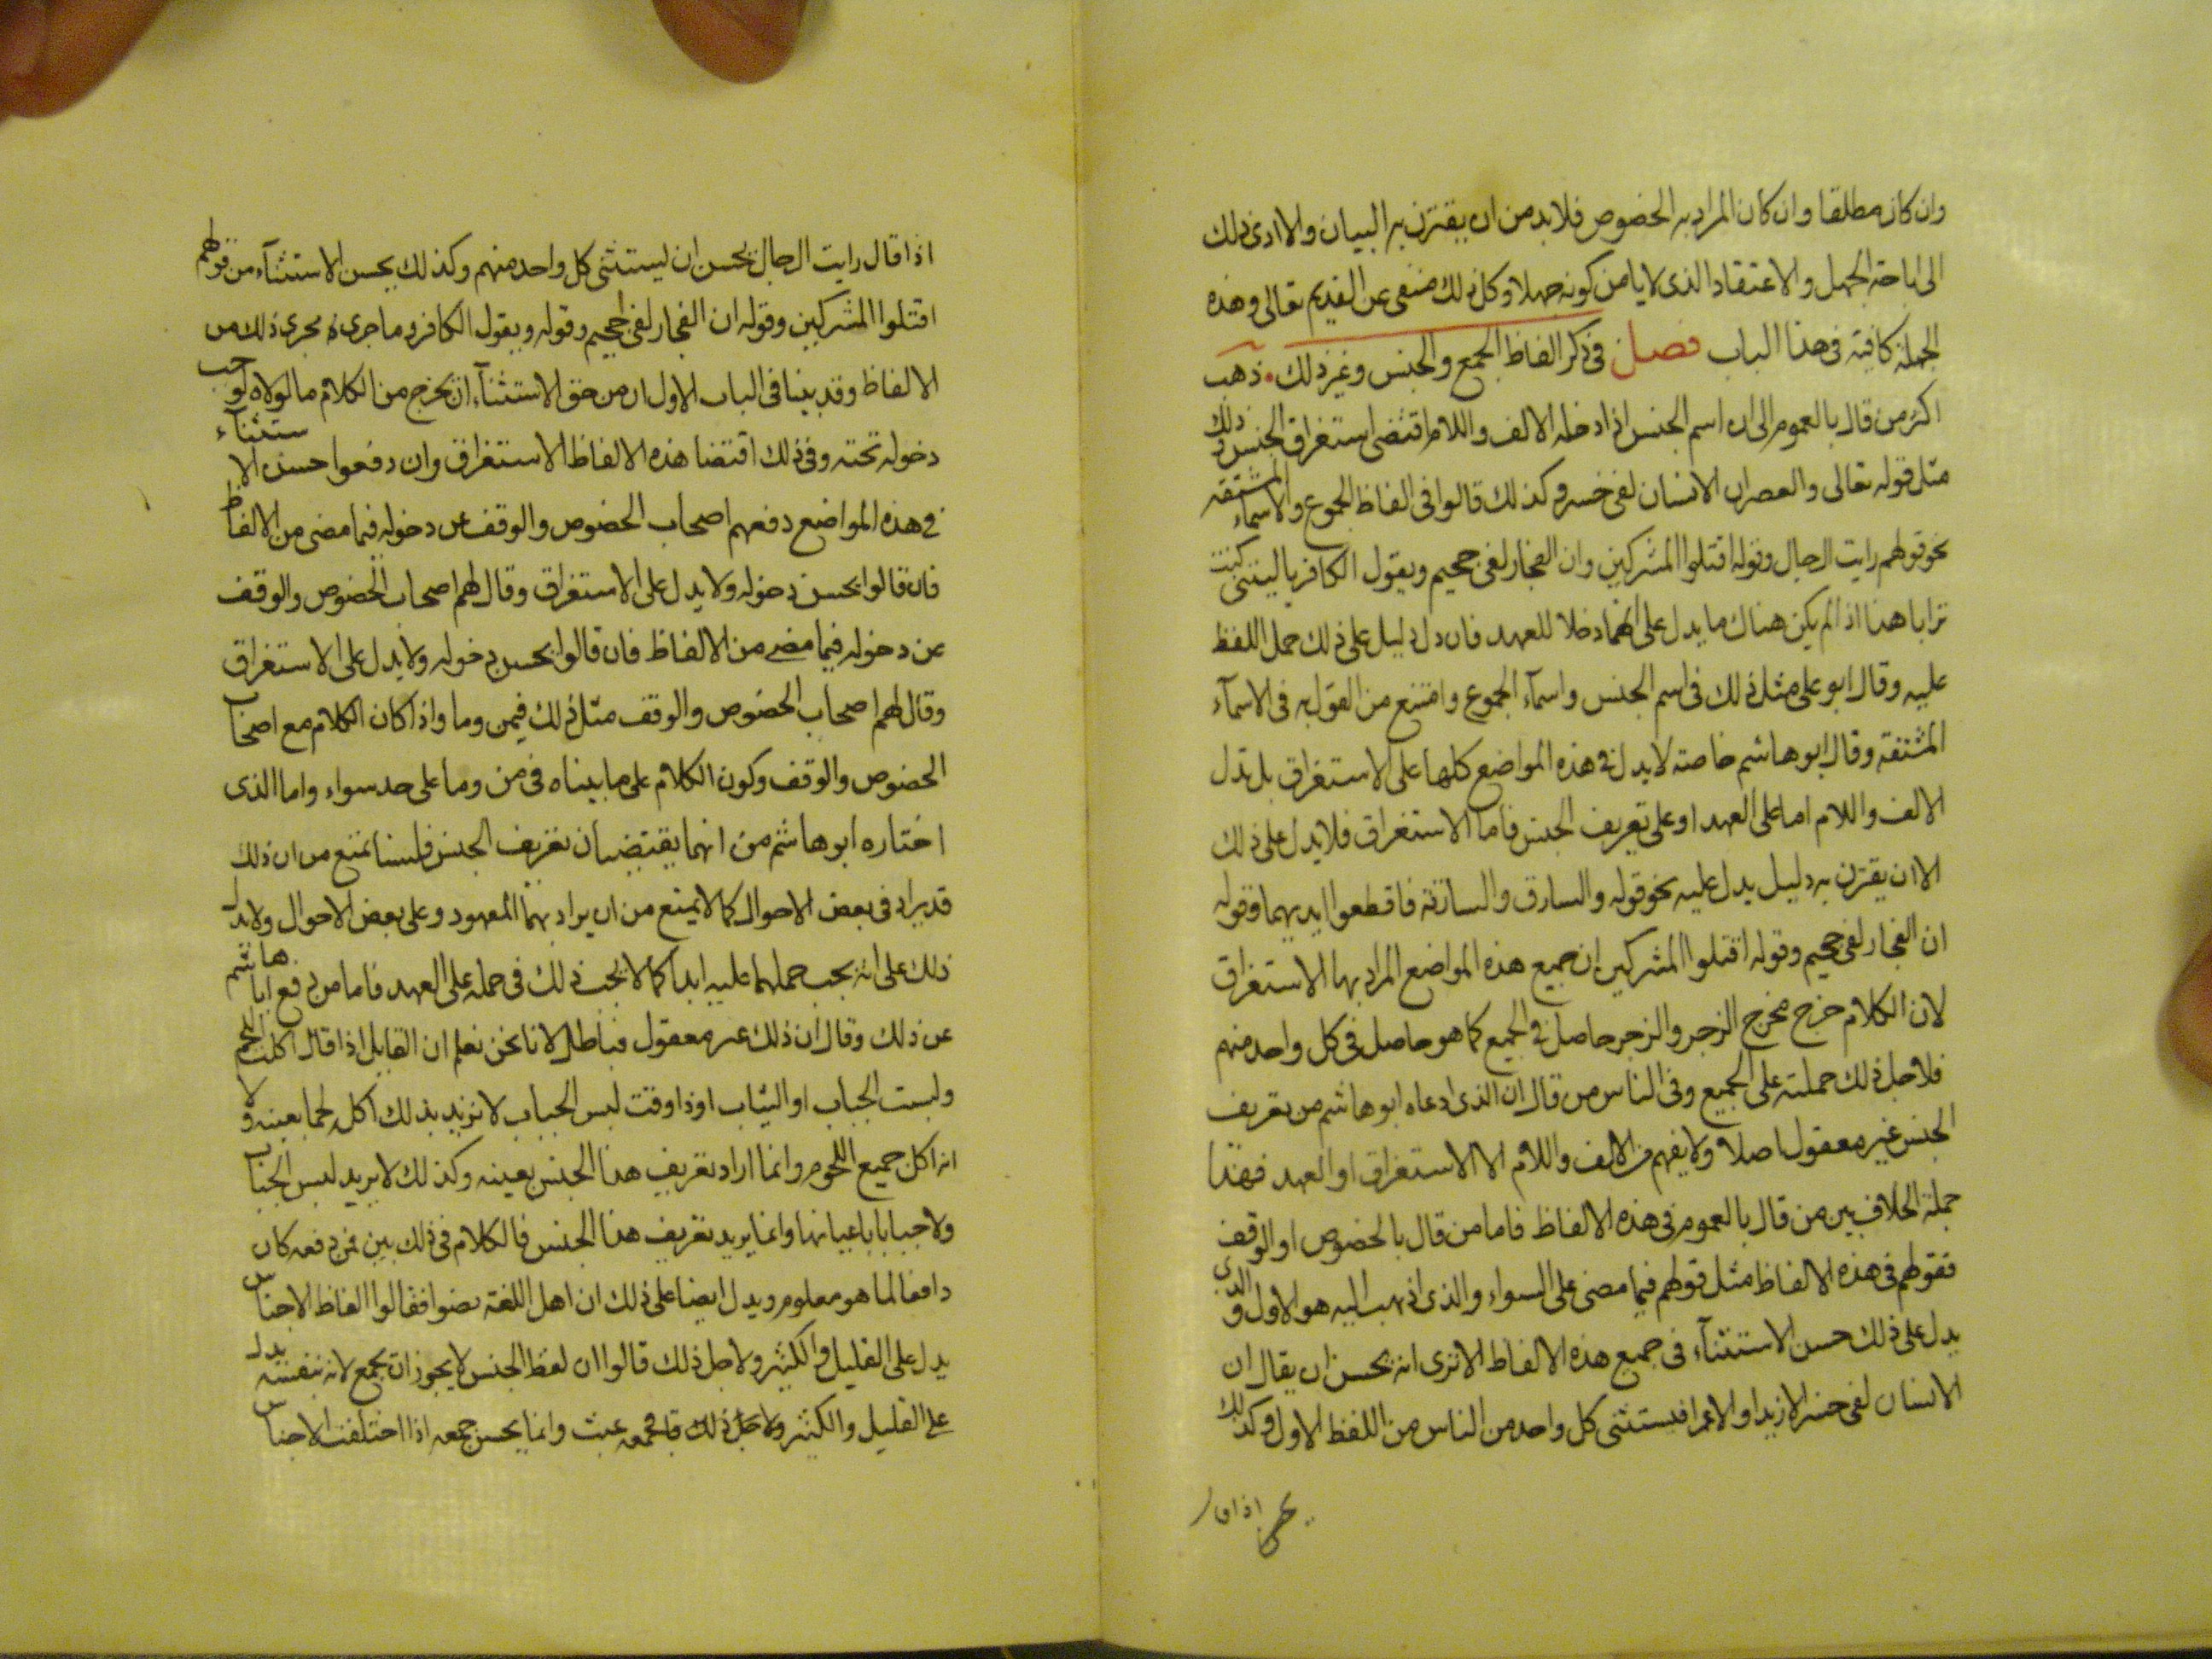 وان كان مطلقا وان كان المراد به الخصوص فلا بد من ان يقترن به البيان والا ادى ذلك
الى اباحة الجهل والاعتقاد الذى لا يامن كونه جهلا وكل ذلك منفى عن القديم تعالى وهذه
الجملة كافية فى هذا الباب فصل فى ذكر الفاظ الجمع والجنس وغير ذلك ذهب
اكثر من قال بالعموم الى ان اسم الجنس اذا دخله الالف واللام اقتضى استغراق الجنس وذلك
مثل قوله تعالى والعصر ان الانسان لفى خسر وكذلك قالوا فى الفاظ الجموع والاسماء المشتقه
نحو قولهم رايت الرجال وقوله اقتلوا المشركين وان الفجار لفى جحيم ويقول الكافر يا ليتنى كنت
ترابا هذا اذا لم يكن هناك ما يدل على انهما دخلا للعهد فان دل دليل على ذلك حمل اللفظ
عليه وقال ابو على مثل ذلك فى اسم الجنس واسمآء الجموع وامتنع من القول به فى الاسمآء
المشتقة وقال ابو هاشم خاصة لا يدل فى هذه المواضع كلها على الاستغراق بل تدل
الالف واللام اما على العهد او على تعريف الجنس فاما الاستغراق فلا يدل على ذلك
الا ان يقترن به دليل يدل عليه نحو قوله والسارق والسارقة فاقطعوا ايديهما وقوله
ان الفجار لفى جحيم وقوله اقتلوا المشركين ان جميع هذه المواضع المراد بها الاستغراق
لان الكلام خرج مخرج الزجر والزجر حاصل فى الجميع كما هو حاصل فى كل واحد منهم
فلاجل ذلك حملته على الجميع وفى الناس من قال ان الذى ادعاه ابو هاشم من تعريف
الجنس غير معقول اصلا ولا يفهم من الالف واللام الا الاستغراق او العهد فهذا
جملة الخلاف بين من قال بالعموم فى هذه الالفاظ فاما من قال بالخصوص او الوقف
فقولهم فى هذه الالفاظ مثل قولهم فيما مضى على السواء والذى اذهب اليه هو الاول والذى
يدل على ذلك حسن الاستثنآء فى جميع هذه الالفاظ الا ترى انه يحسن ان يقال ان
الانسان لفى خسر الا زيدا والا عمرا فيستثنى كل واحد من الناس من اللفظ الاول وكذلك
اذا قال
اذا قال رايت الرجال يحسن ان يستثنى كل واحد منهم وكذلك يحسن الاستثنآء من قولهم
اقتلوا المشركين وقوله ان الفجار لفى جحيم وقوله ويقول الكافر وما جرى مجرى ذلك من
الالفاظ وقد بينا فى الباب الاول ان من حق الاستثنآء ان يخرج من الكلام ما لولاه لوجب
دخوله تحته وفى ذلك اقتضا هذه الالفاظ الاستغراق وان دفعوا حسن الاستثنآء
فى هذه المواضع دفعهم اصحاب الخصوص والوقف عن دخوله فيما مضى من الالفاظ
فان قالوا يحسن دخوله ولا يدل على الاستغراق وقال لهم اصحاب الخصوص والوقف
عن دخوله فيما مضى من الالفاظ فان قالوا يحسن دخوله ولا يدل على الاستغراق
وقال لهم اصحاب الخصوص والوقف مثل ذلك فيمن وما واذا كان الكلام مع اصحاب
الخصوص والوقف وكون الكلام على ما بيناه فى من وما على حد سواء واما الذى
اختاره ابو هاشم من انهما يقتضيان تعريف الجنس فلسنا نمنع من ان ذلك
قد يراد فى بعض الاحوال كما لا يمتنع من ان يراد بهما المعهود وعلى بعض الاحوال ولا يدل
ذلك على انه يجب حملهما عليه ابدا كما لا يجب ذلك فى حمله على العهد فاما من دفع ابا هاشم
عن ذلك وقال ان ذلك غير معقول فباطل لانا نحن نعلم ان القايل اذا قال اكلت اللحم
ولبست الجباب او الثياب اوذا وقت لبس الجباب لا نريد بذلك اكل لحما بعينه ولا
انه اكل جميع اللحوم وانما اراد تعريف هذا الجنس بعينه وكذلك لا يريد لبس الجباب
ولا جبابا باعيانها وانما يريد تعريف هذا الجنس فالكلام فى ذلك بين فمن دفعه كان
دافعا لما هو معلوم ويدل ايضا على ذلك ان اهل اللغة نصوا فقالوا الفاظ الاجناس
يدل على القليل والكثير ولاجل ذلك قالوا ان لفظ الجنس لا يجوز ان يجمع لانه بنفسه يدل
على القليل والكثير ولاجل ذلك فجمعه عبث وانما يحسن جمعه اذا اختلفت الاجناس